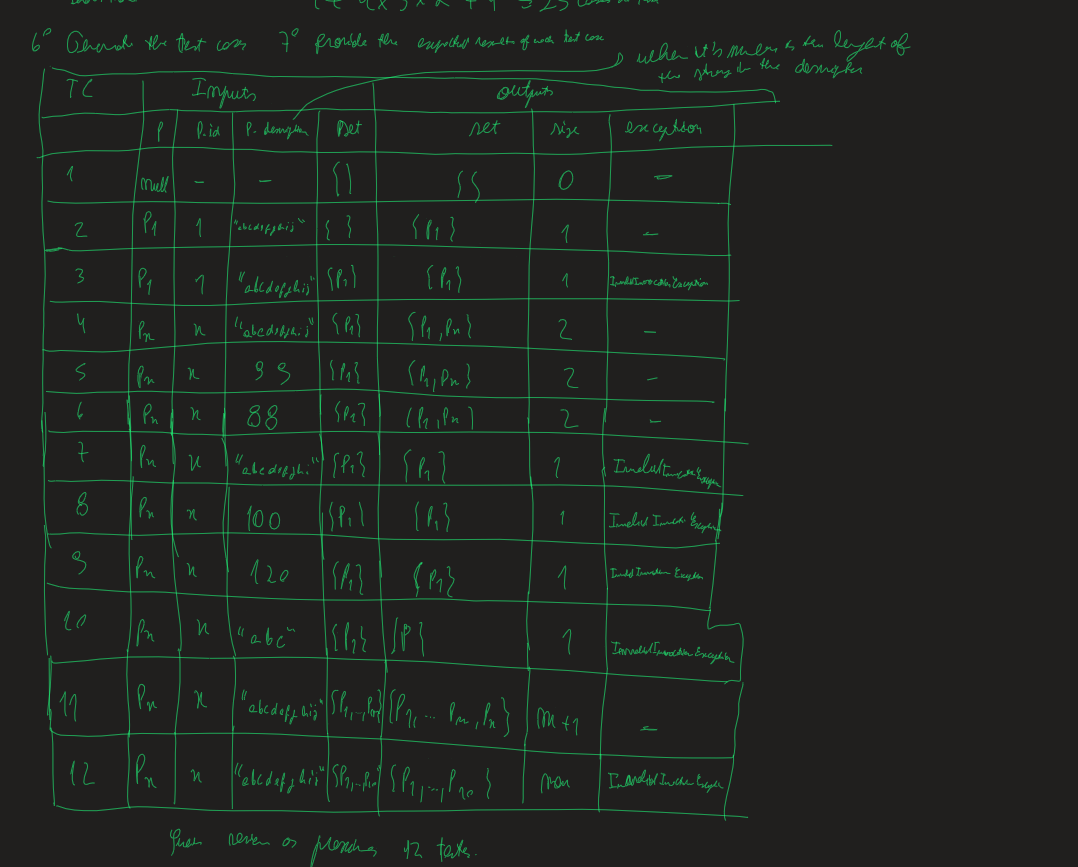 6° Generate the test cases 7° provide the expected results of each test case
when it's number is the lenght of
the string in the
TC Inputs outputs
P P.id P. Set set size exception
1 null - - { } { } 0 -
2 P1 1 "abcdefghij" { } {P1} 1 -
3 P1 1 "abcdefghij" {P1} {P1} 1 InvalidInvocationException
4 Pn n "abcdefghij" {P1} {P1, Pn} 2 -
5 Pn n 99 {P1} {P1, Pn} 2 -
6 Pn n 88 {P1} {P1, Pn} 2 -
7 Pn n "abcdefghi" {P1} {P1} 1 InvalidInvocationException
8 Pn n 100 {P1} {P1} 1 Invalid Invocation Exception
9 Pn n 120 {P1} {P1} 1 Invalid Invocation Exception
10 Pn n "abc" {P1} {P} 1 InvalidInvocation Exception
11 Pn n "abcdefghij" {P1, ..., Pm} {P1, ... Pm, Pn} m+1 -
12 Pn n "abcdefghij" {P1, ..., P10} {P1, ..., P10} Invalid Invocation Exception
12 tests.